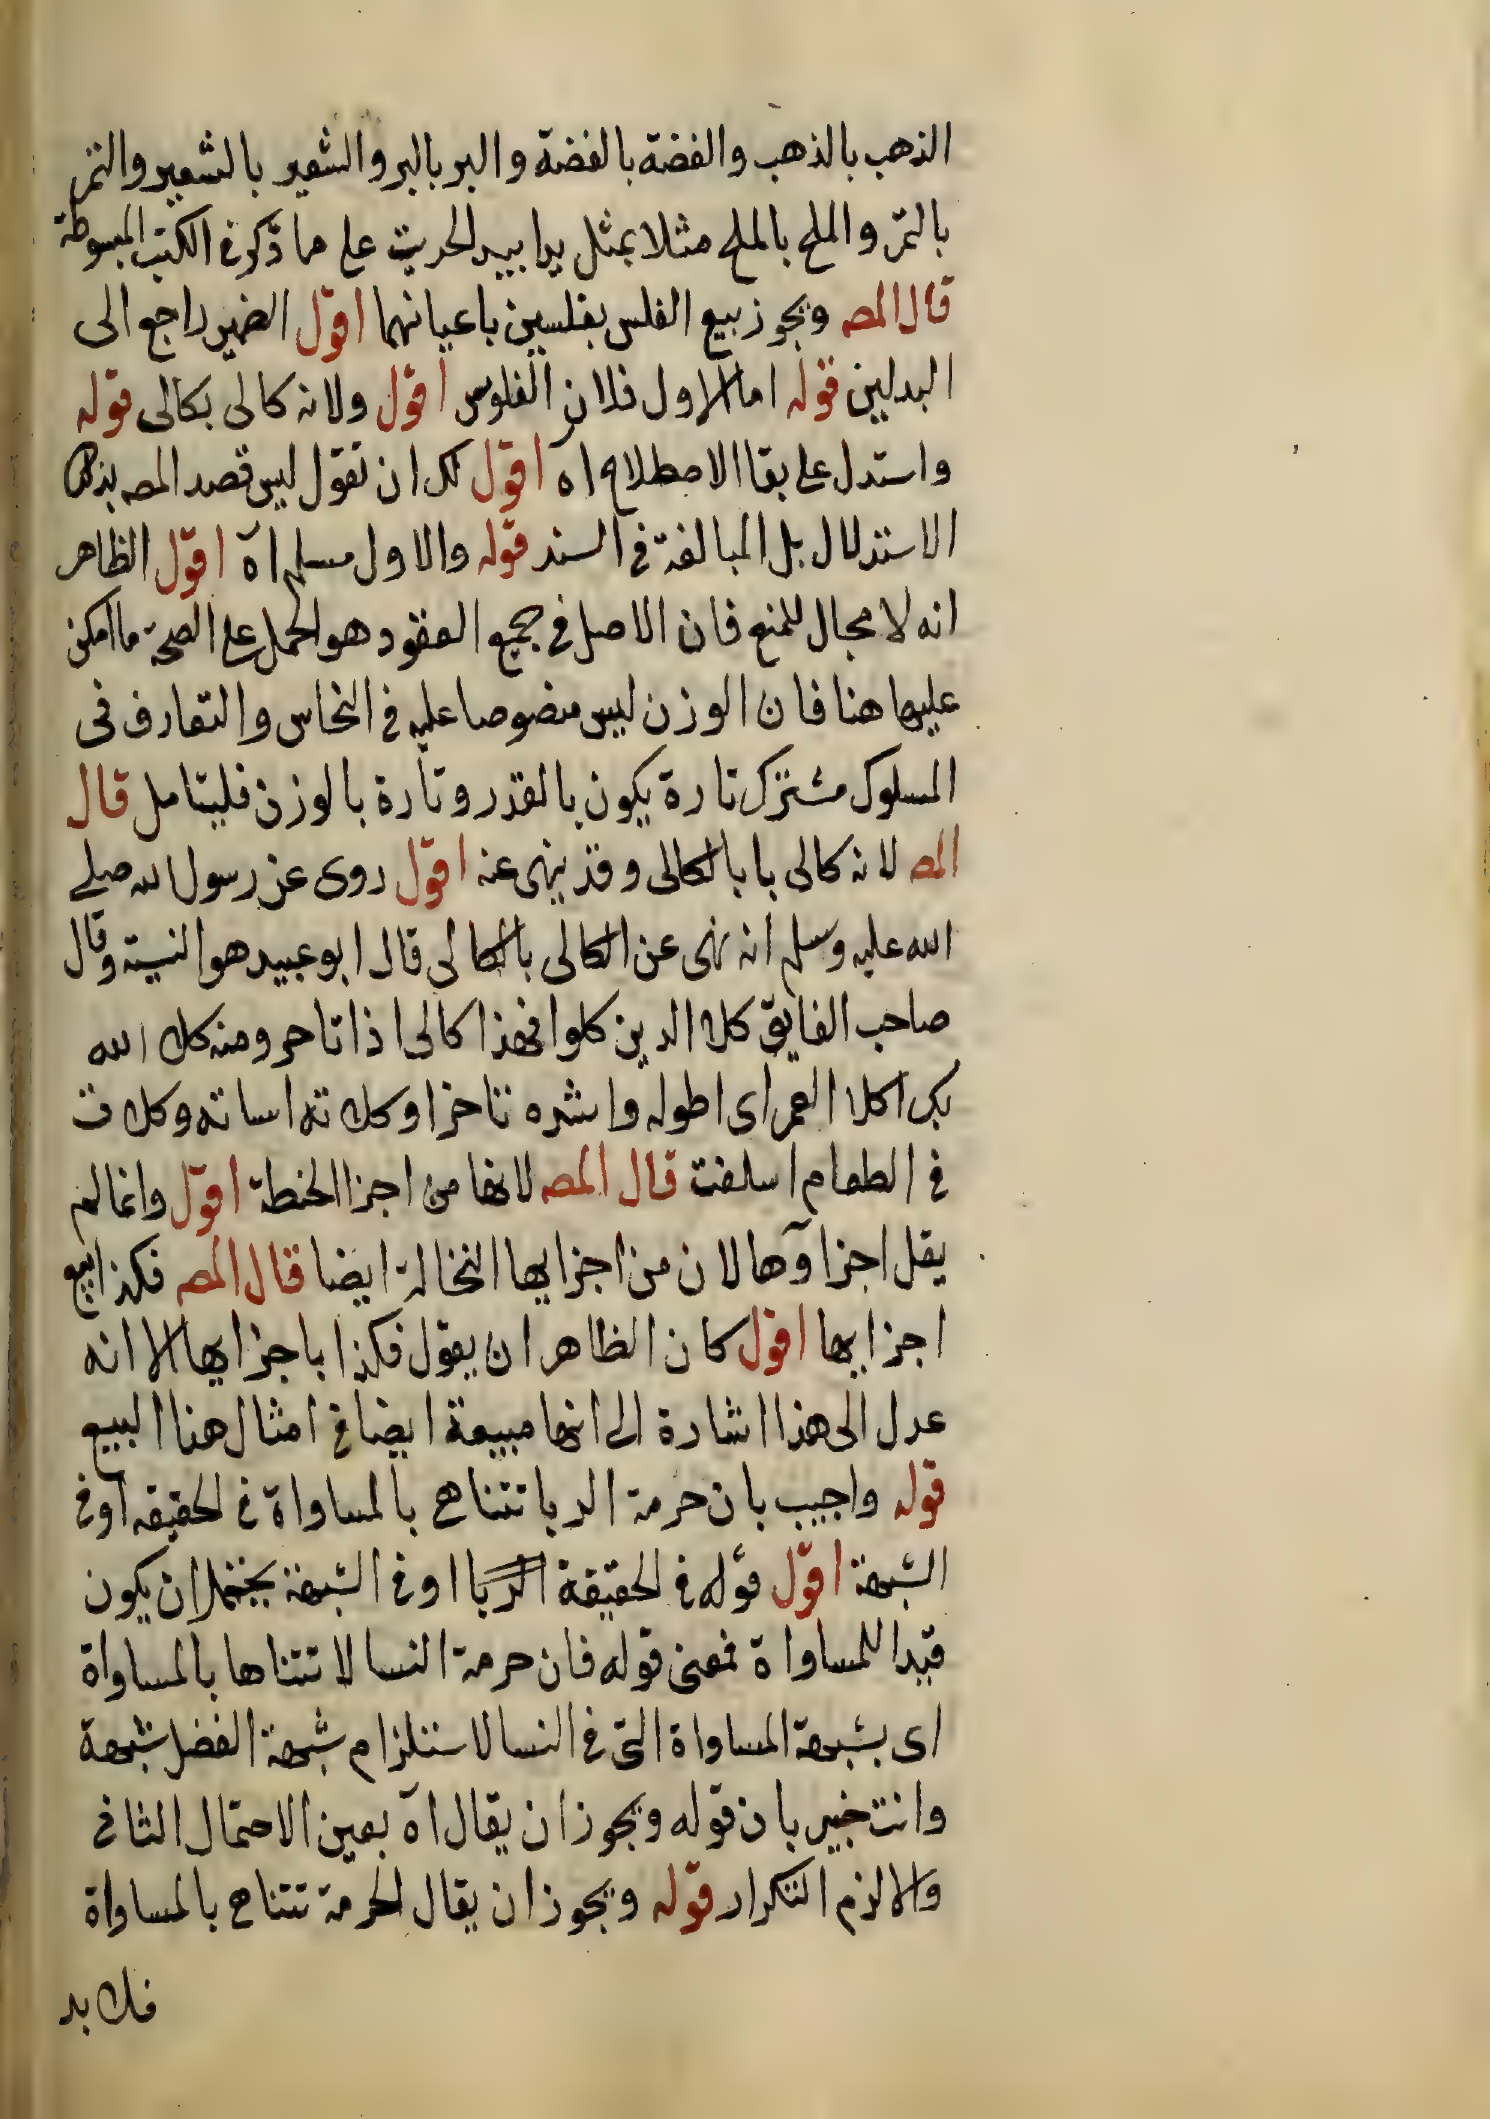 الذهب بالذهب والفضة بالفضة والبر بالبر والشعير بالشعير والتمر
بالتمر والملح بالملح مثلا بمثل يدا بيد الحديث على ما ذكر في الكتب المبسوطة
قال المصه ويجوز بيع الفلس بفلسين باعيانهما اقول الضمير راجع الى
البدلين قوله اما الاول فلان الفلوس اقول ولانه كالى بكالى قوله
واستدل على بقاا الاصطلاح اه اقول لك ان تقول ليس قصد المصه بذلك
الاستدلال بل المبالغة في السند قوله والاول مسلم اه اقول الظاهر
انه لا مجال للمنع فان الاصل في جميع العقود هو الحمل على الصحة ما امكن
عليها هنا فان الوزن ليس منصوصا عليه في النحاس والتعارف في
المسلوك مشترك تارة يكون بالقدر وتارة بالوزن فليتامل قال
المصه لانه كالى بابالكالى وقد ينهى عنه اقول روى عن رسول الله صلى
الله عليه وسلم انه نهى عن الكالى بالكالى قال ابو عبيد هو النسية وقال
صاحب الفايق كلا الدين كلوا فهذا كالى اذا تاخر ومنه كلا الله
بك اكلا العمر اى اطوله واشده تاخرا وكلا ته اساته وكلا ت
في الطعام اسلفت قال المصه لانها من اجزا الحنطة اقول وانما لم
يقل اجزاوها لان من اجزايها النخالة ايضا قال المصه فكذا بيع
اجزايها اقول كان الظاهر ان يقول فكذا باجزايها الا انه
عدل الى هذا اشارة الى انها مبيعة ايضا في امثال هذا البيع
قوله واجيب بان حرمة الربا تتناهى بالمساواة في الحقيقه او في
الشبهة اقول قوله في الحقيقة الربا او في الشبهة يحتمل ان يكون
قيدا للمساواة فمعنى قوله فان حرمة النسا لا تتناها بالمساواة
اى بشبهة المساواة التى في النسا لاستلزام شبهة الفضل شبهة
وانت خبير بان قوله ويجوز ان يقال اه بعين الاحتمال الثانى
والا لزم التكرار قوله ويجوز ان يقال الحرمة تتناهى بالمساواة
فلا بد